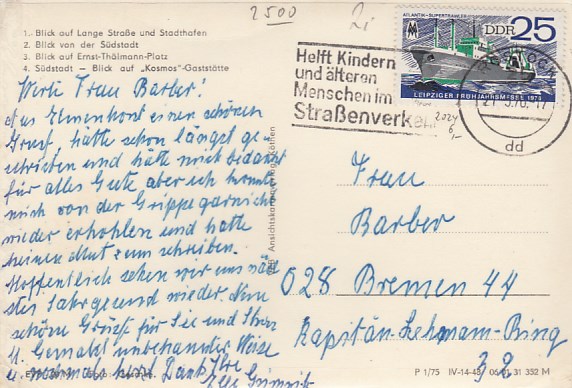 2500
1. Blick auf Lange Straße und Stadthafen
2. Blick von der Südstadt
3. Blick auf Ernst-Thälmann-Platz
4. Südstadt – Blick auf „Kosmos"-Gaststätte
ATLANTIK-SUPERTRAWLER
DDR 25
LEIPZIGER FRÜHJAHRSMESSE 1975
Helft Kindern
und älteren
Menschen im
Straßenverkehr
ROSTOCK
dd
Werte Frau Barber!
Aus Elmenhorst einen schönen
Gruß, hätte schon längst ge-
schrieben und hätte mich bedankt
für alles Gute aber ich konnte
mich von der Grippe garnicht
wieder erhohlen und hatte
keinen Mut zum schreiben.
Hoffentlich sehen wir uns näch-
stes Jahr gesund wieder. Nun
schöne Grüße für Sie und Ihren
u. Gemahl unbekannter Weise
u. nochmals herzl. Dank Ihre
Frau
Barber
028 Bremen 44
Kapitän-Lehmann-Ring
38
Ansichtskartenverlag Köthen
P 1/75 IV-14-48 06 01 31 332 M